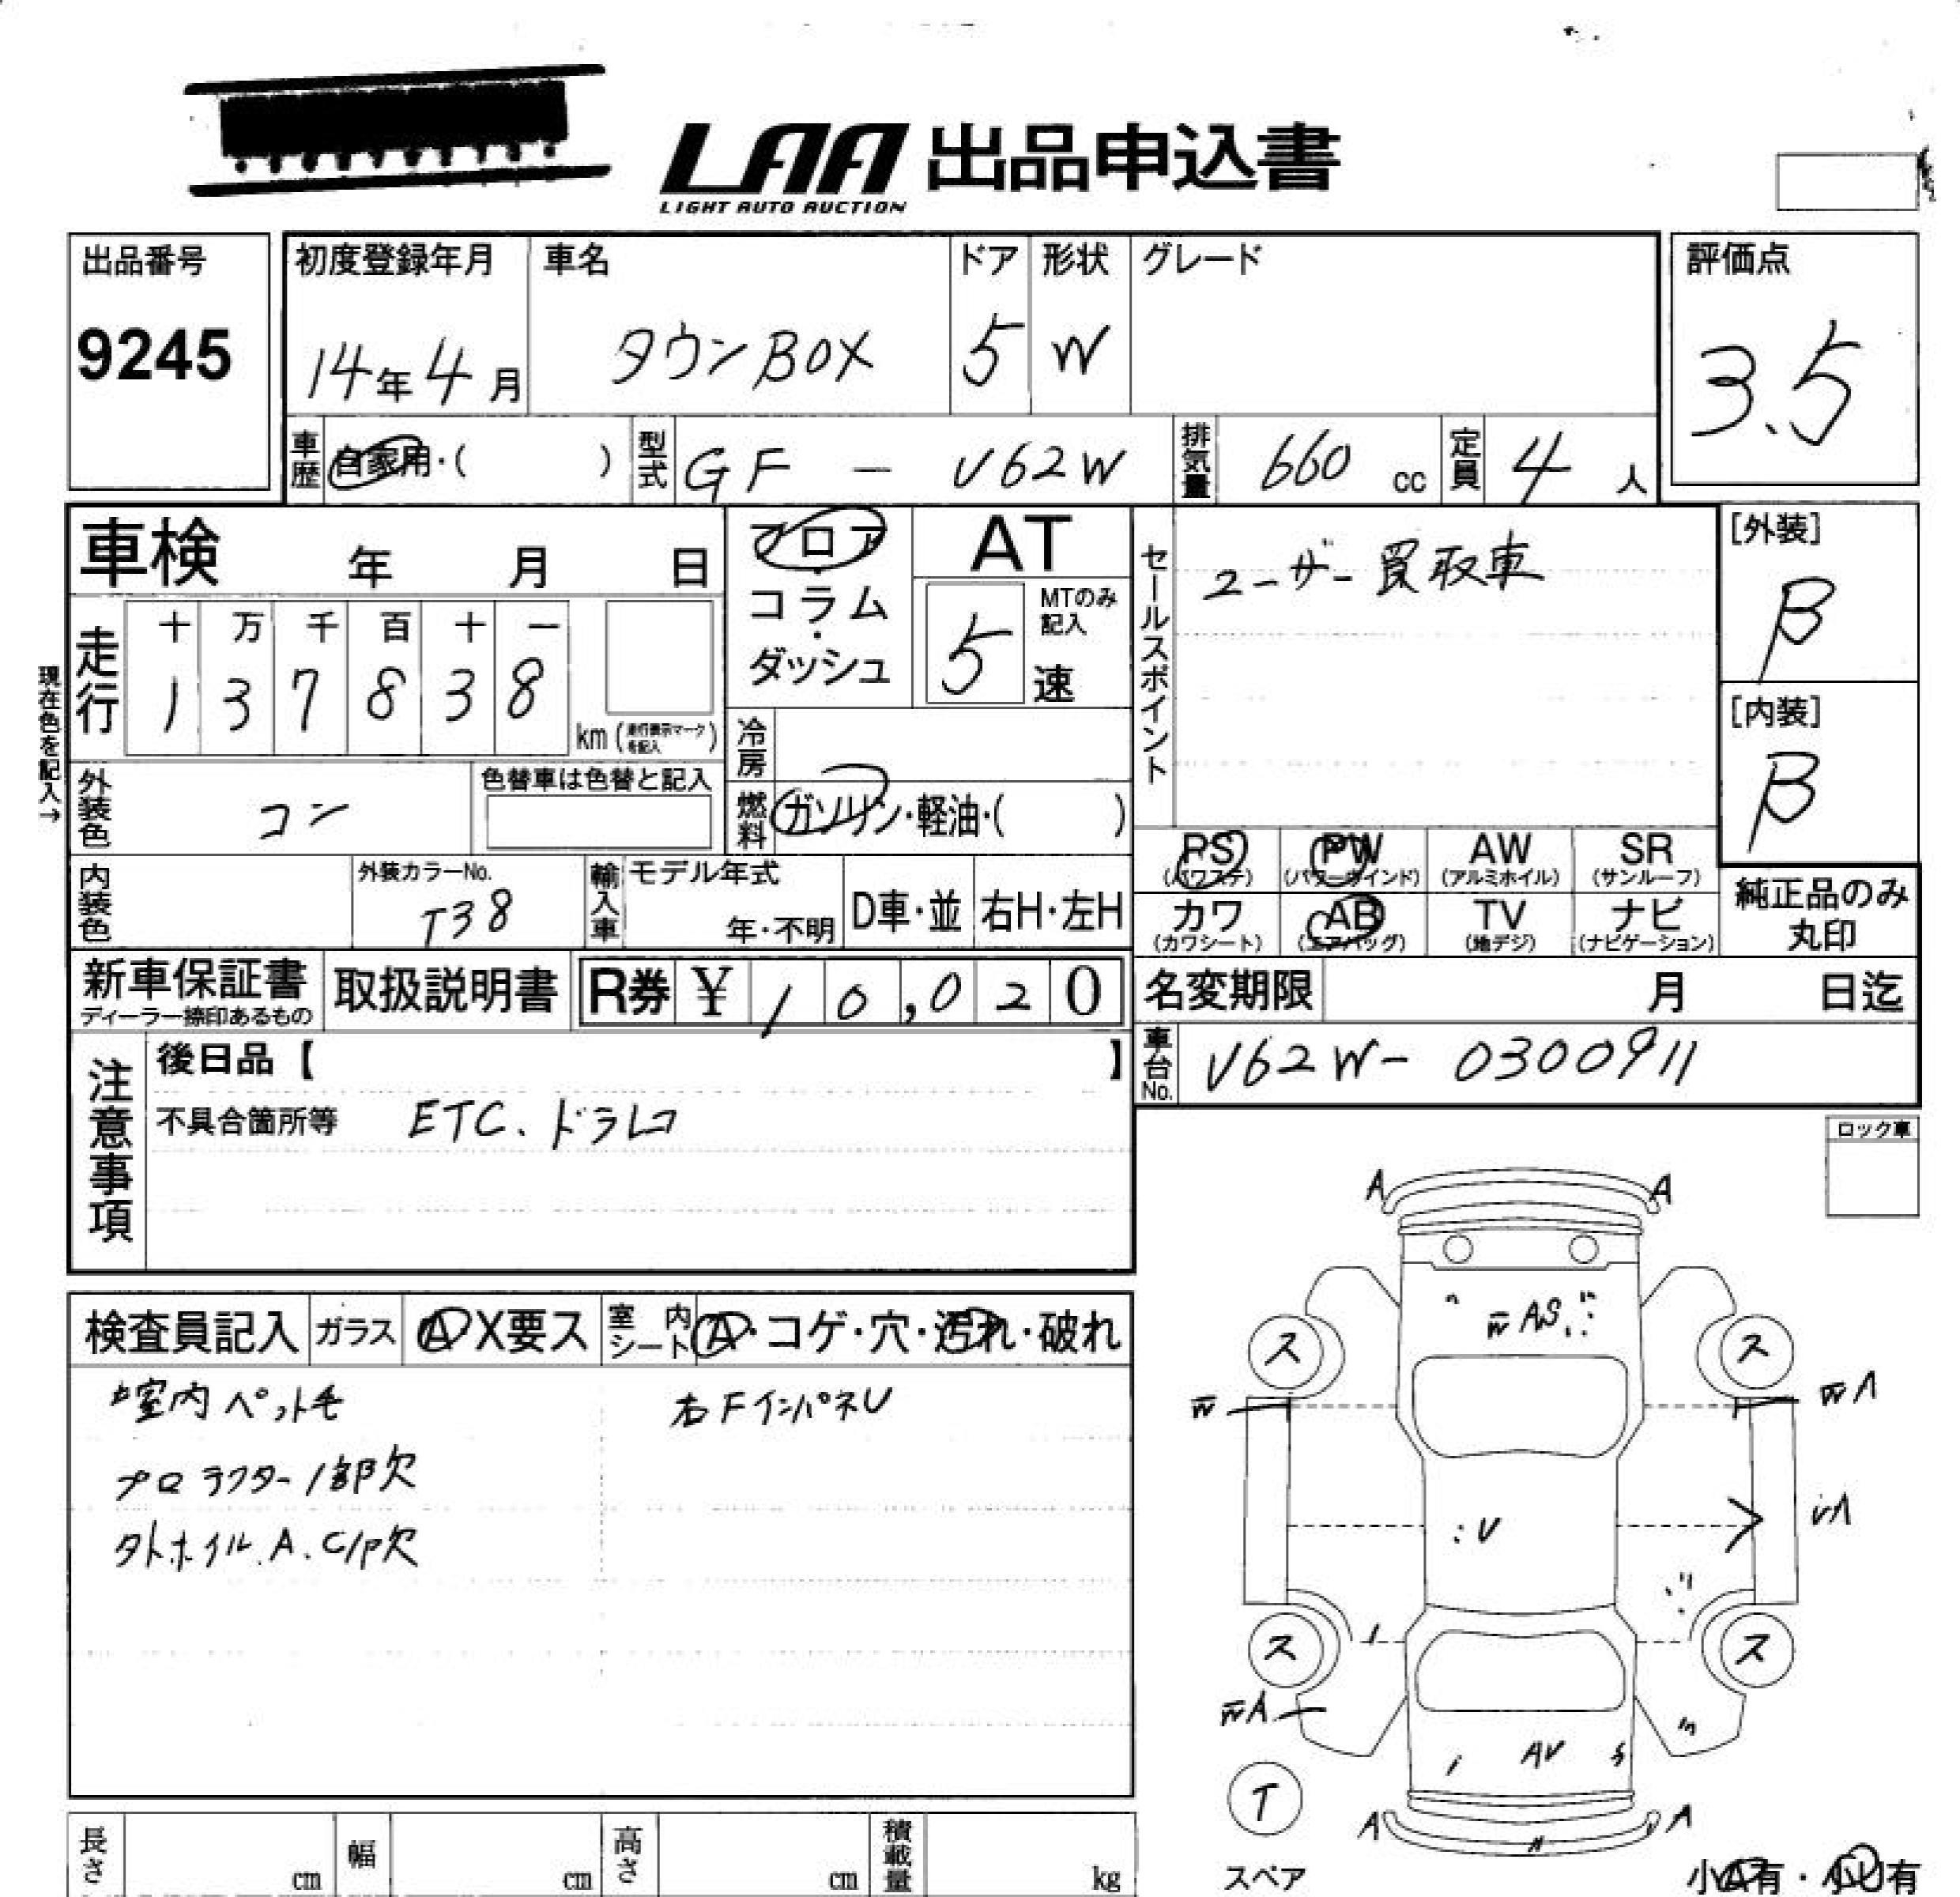 LAA 出品申込書
LIGHT AUTO AUCTION
出品番号
9245
初度登録年月
14年4月
車名
タウンBOX
ドア
5
形状
W
グレード
評価点
3.5
車歴
自家用・( )
型式
GF - V62W
排気量
660 cc
定員
4 人
車検 年 月 日
走行
十 万 千 百 十 一
1 3 7 8 3 8
km (走行表示マークを記入)
現在色を記入→
外装色
コン
色替車は色替と記入
内装色
外装カラーNo.
T38
フロア・コラム・ダッシュ
AT
5 速
MTのみ記入
冷房
燃料
ガソリン・軽油・( )
輸入車
モデル年式
年・不明
D車・並
右H・左H
セールスポイント
ユーザー買取車
[外装]
B
[内装]
B
PS
(パワステ)
PW
(パワーウインド)
AW
(アルミホイル)
SR
(サンルーフ)
カワ
(カワシート)
AB
(エアバッグ)
TV
(地デジ)
ナビ
(ナビゲーション)
純正品のみ
丸印
新車保証書
ディーラー捺印あるもの
取扱説明書
R券 ¥ 10,020
名変期限 月 日迄
車台No.
V62W- 0300911
注意事項
後日品【 】
不具合箇所等 ETC、ドラレコ
ロック車
検査員記入
ガラス
A X要ス
室内シート
A・コゲ・穴・汚れ・破れ
室内ペット毛
右FインパネU
プロテクター1部欠
タトホイル.A.C/P欠
A A
W AS
ス ス
W WA
U UA
ス ス
WA
AU
T
スペア
A A
小A有・小U有
長さ cm
幅 cm
高さ cm
積載量 kg